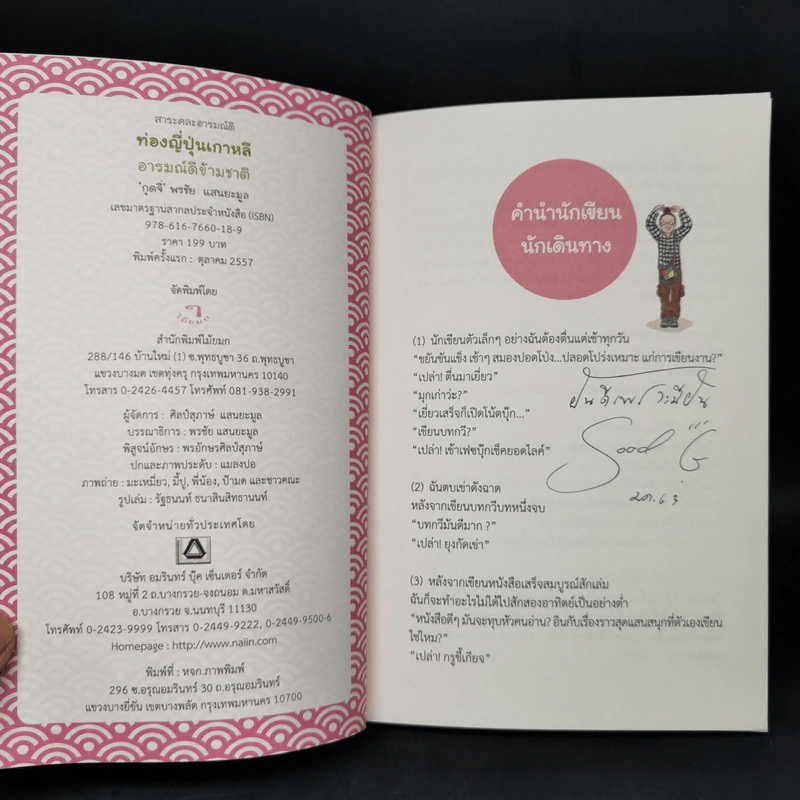 สาระคละอารมณ์ดี
ท่องญี่ปุ่นเกาหลี
อารมณ์ดีข้ามชาติ
'กุดจี่' พรชัย แสนยะมูล
เลขมาตรฐานสากลประจำหนังสือ (ISBN)
978-616-7660-18-9
ราคา 199 บาท
พิมพ์ครั้งแรก : ตุลาคม 2557
จัดพิมพ์โดย
ไม้ยมก
สำนักพิมพ์ไม้ยมก
288/146 บ้านใหม่ (1) ซ.พุทธบูชา 36 ถ.พุทธบูชา
แขวงบางมด เขตทุ่งครุ กรุงเทพมหานคร 10140
โทรสาร 0-2426-4457 โทรศัพท์ 081-938-2991
ผู้จัดการ : ศิลป์สุภาษ์ แสนยะมูล
บรรณาธิการ : พรชัย แสนยะมูล
พิสูจน์อักษร : พรอักษรศิลป์สุภาษ์
ปกและภาพประดับ : แมลงปอ
ภาพถ่าย : มะเหมี่ยว, มี้ปู, พี่น้อง, ป้ามด และชาวคณะ
รูปเล่ม : รัฐธนนท์ ธนาสินสิทธานนท์
จัดจำหน่ายทั่วประเทศโดย
บริษัท อมรินทร์ บุ๊ค เซ็นเตอร์ จำกัด
108 หมู่ที่ 2 ถ.บางกรวย-จงถนอม ต.มหาสวัสดิ์
อ.บางกรวย จ.นนทบุรี 11130
โทรศัพท์ 0-2423-9999 โทรสาร 0-2449-9222, 0-2449-9500-6
Homepage : http://www.naiin.com
พิมพ์ที่ : หจก.ภาพพิมพ์
296 ซ.อรุณอมรินทร์ 30 ถ.อรุณอมรินทร์
แขวงบางยี่ขัน เขตบางพลัด กรุงเทพมหานคร 10700
คำนำนักเขียน
นักเดินทาง
(1) นักเขียนตัวเล็กๆ อย่างฉันต้องตื่นแต่เช้าทุกวัน
"ขยันขันแข็ง เช้าๆ สมองปอดโปง...ปลอดโปร่งเหมาะ แก่การเขียนงาน?"
"เปล่า! ตื่นมาเยี่ยว"
"มุกเก่าว่ะ?"
"เยี่ยวเสร็จก็เปิดโน้ตบุ๊ก..."
"เขียนบทกวี?"
"เปล่า! เข้าเฟซบุ๊กเช็คยอดไลค์"
Good G
(2) ฉันตบเข่าดังฉาด
หลังจากเขียนบทกวีบทหนึ่งจบ
"บทกวีมันดีมาก ?"
"เปล่า! ยุงกัดเข่า"
(3) หลังจากเขียนหนังสือเสร็จสมบูรณ์สักเล่ม
ฉันก็จะทำอะไรไม่ได้ไปสักสองอาทิตย์เป็นอย่างต่ำ
"หนังสือดีๆ มันจะทุบหัวคนอ่าน? อินกับเรื่องราวสุดแสนสนุกที่ตัวเองเขียน
ใช่ไหม?"
"เปล่า! กรูขี้เกียจ"